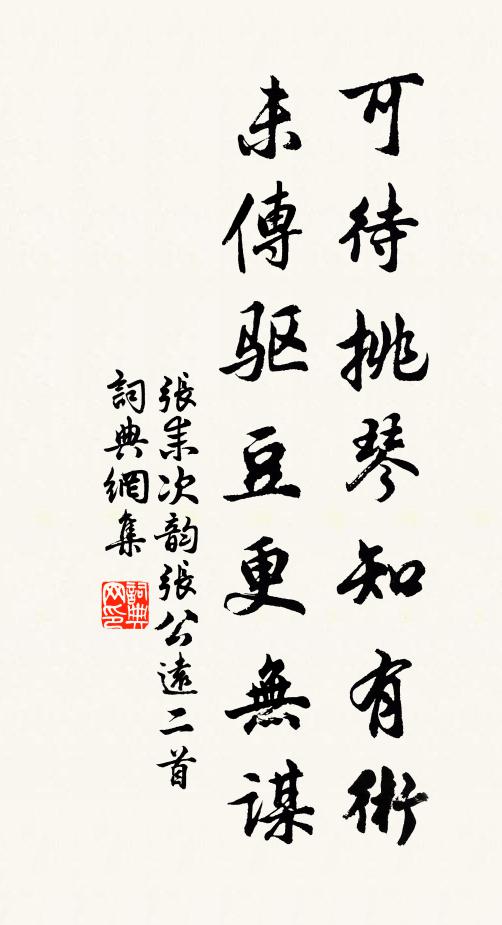 可待挑琴知有術
未傳驱豆更無謀
張耒次韵張公遠二首
詞典網集
詞典
网印